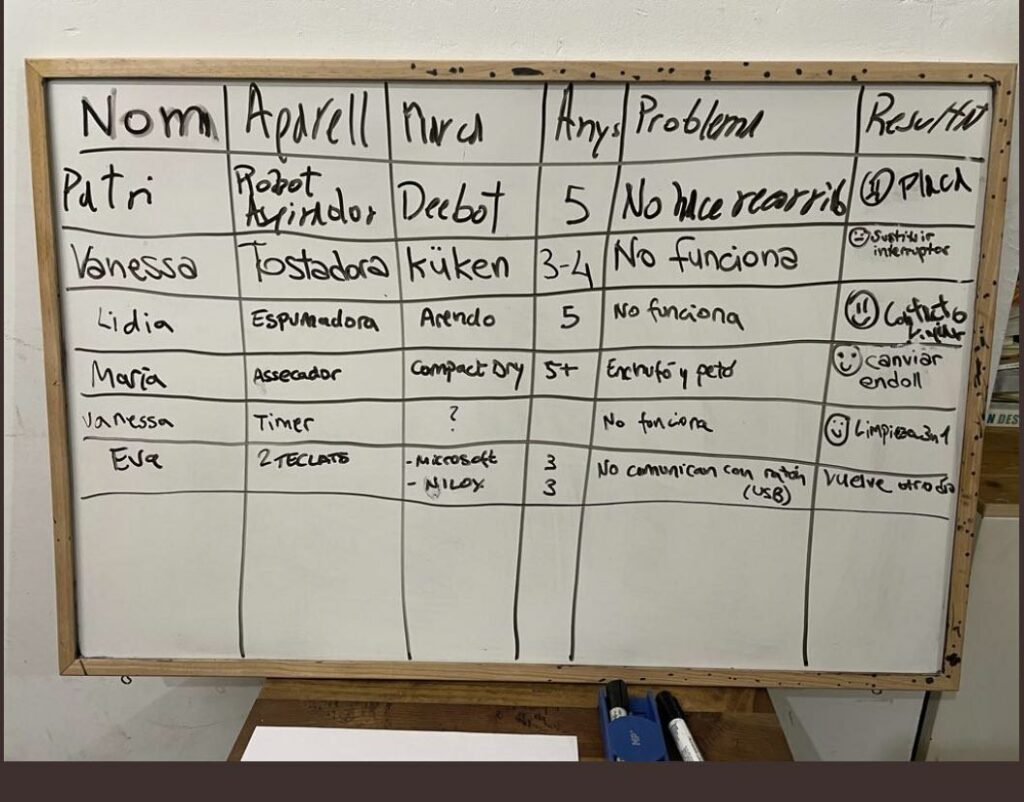 Nom Aparell Marca Anys Problema Resultat
Patri Robot Aspirador Deebot 5 No hace recorrido placa
Vanessa Tostadora Küken 3-4 No funciona Sustituir interruptor
Lidia Espumadora Arendo 5 No funciona Contacto
María Assecador Compact Dry 5+ Enchufó y petó canviar endoll
Vanessa Timer ? No funciona Limpieza 3 en 1
Eva 2 TECLATS - Microsoft 3 No comunican con ratón (USB) Vuelve otro día
- MILOX 3
N DES
HP